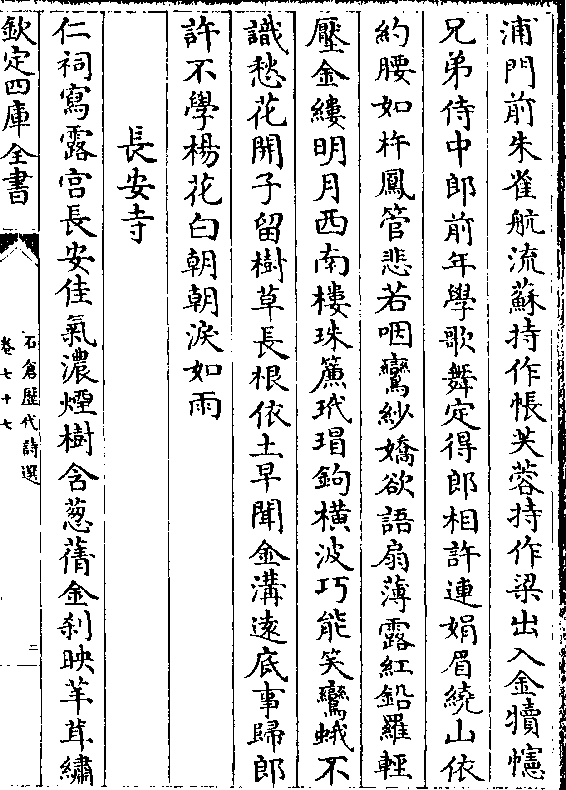 浦門前朱雀航流蘇持作帳芙蓉持作梁出入金犢幰
兄弟侍中郎前年學歌舞定得郎相許連娟眉繞山依
約腰如杵鳳管悲若咽鸞紗嬌欲語扇薄露紅鉛羅輕
壓金縷明月西南樓珠簾玳瑁鉤橫波巧能笑鸞蛾不
識愁花開子留樹草長根依土早聞金溝逺底事歸郎
許不學楊花白朝朝淚如雨
長安寺
仁祠寫露宫長安佳氣濃煙樹含葱蒨金刹映芊茸繡
欽定四庫全書
石倉歷代詩選
卷七十七
二